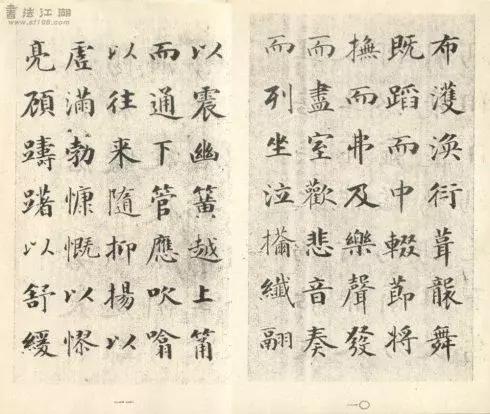 書法江湖
www.sf108.com
布濩渙衍葺襲舞
既蹈而中輟節將
撫而弗及樂聲發
而盡室歡悲音奏
而列坐泣㩶纖翮
一〇
以震幽簧越上筩
而通下管應吹噏
以往来隨抑揚以
虛滿勃慷慨以憀
亮顧躊躇以舒緩